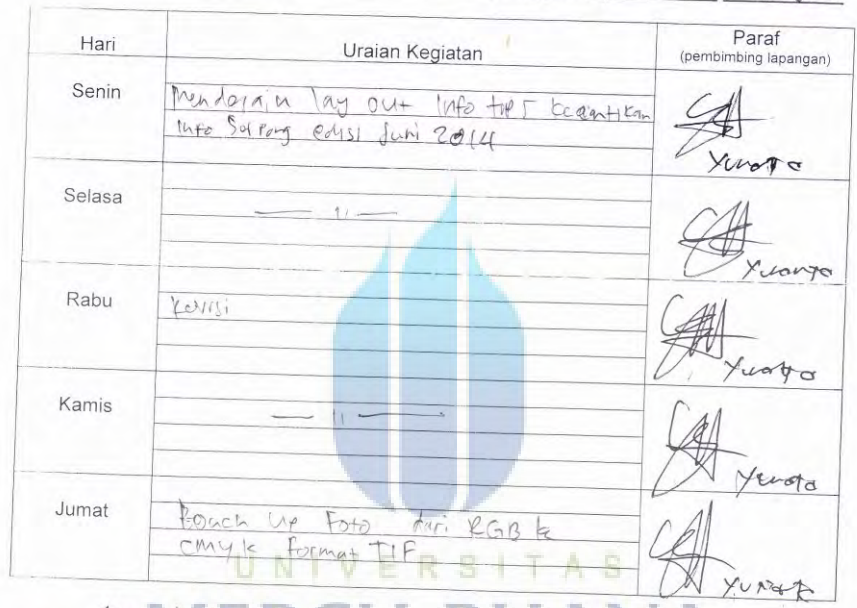 Hari Uraian Kegiatan Paraf
(pembimbing lapangan)
Senin Mendesain lay out info tips kecantikan
info Serpong edisi Juni 2014
Yunanto
Selasa — 11 —
Yunanto
Rabu Revisi
Yunanto
Kamis — 11 —
Yunanto
Jumat Touch up Foto dari RGB ke
CMYK format TIF
UNIVERSITAS